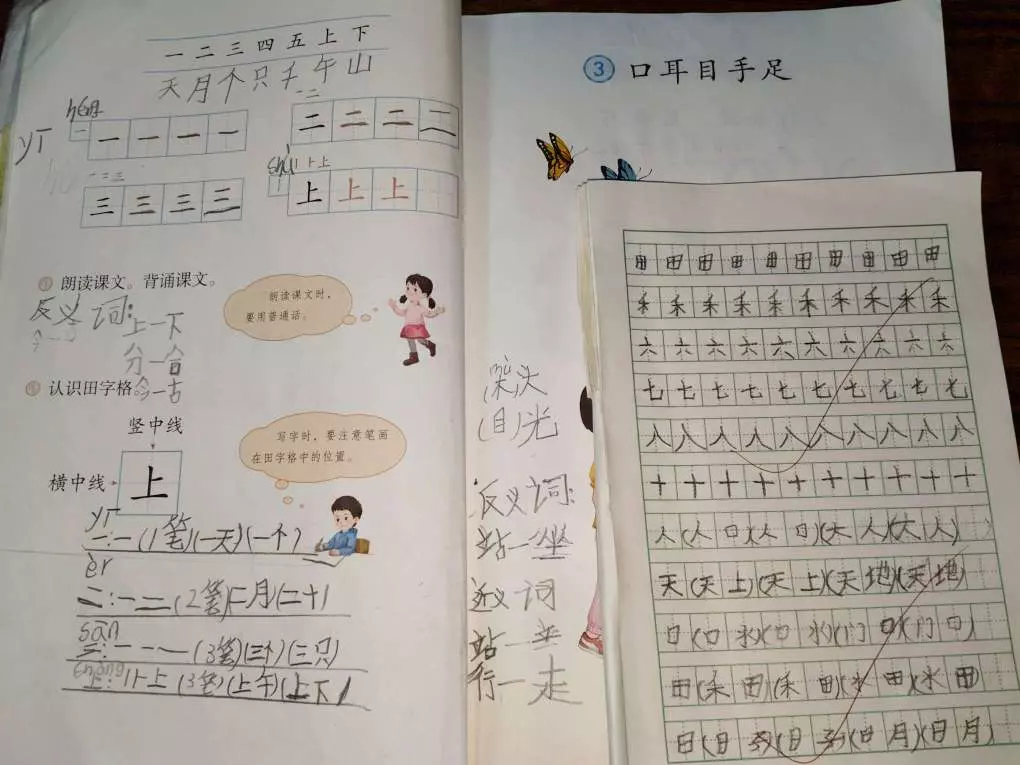 一 二 三 四 五 上 下
天月个只 午山
一 一 一 一
二 二 二 二
三 三 三 三
上 上 上
朗读课文。背诵课文。
朗读课文时，
要用普通话。
反义词：
上—下
分—合
今—古
认识田字格。
竖中线
横中线
上
写字时，要注意笔画
在田字格中的位置。
yī
一：一(1笔)(一天)(一个)
èr
二：一二(2笔)(二月)(二十)
sān
三：一 一 一 (3笔)(三个)(三只)
上：丨卜上(3笔)(上午)(上下)
③ 口耳目手足
(目)光
反义词：
站—坐
近义词
行—走
田 田 田 田 田 田 田 田 田 田
禾 禾 禾 禾 禾 禾 禾 禾 禾 禾
六 六 六 六 六 六 六 六 六 六
七 七 七 七 七 七 七 七 七 七
八 八 八 八 八 八 八 八 八 八
十 十 十 十 十 十 十 十 十 十
人(人口)(人口)(大人)(大人)
天(天上)(天上)(天地)(天地)
口(口水)(口水)(门口)(门口)
田(禾田)(禾田)(水田)(水田)
日(日 (日 (日月)(日月)